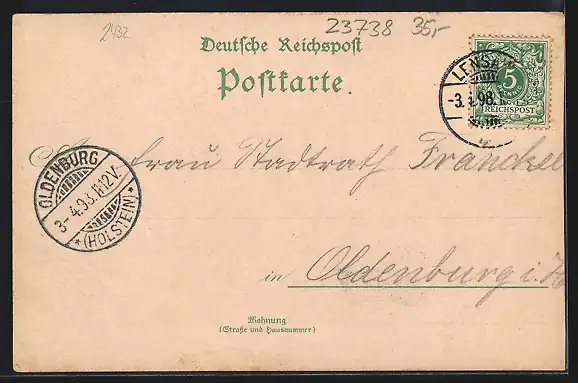 2432
23738 35,-
Deutsche Reichspost
Postkarte.
LENSA
-3. 98.
5
PFENNIG
REICHSPOST
OLDENBURG
3-4.93.11-12V.
*(HOLSTEIN)*
Frau Stadtrath Franckel
in Oldenburg i. H
Wohnung
(Straße und Hausnummer)